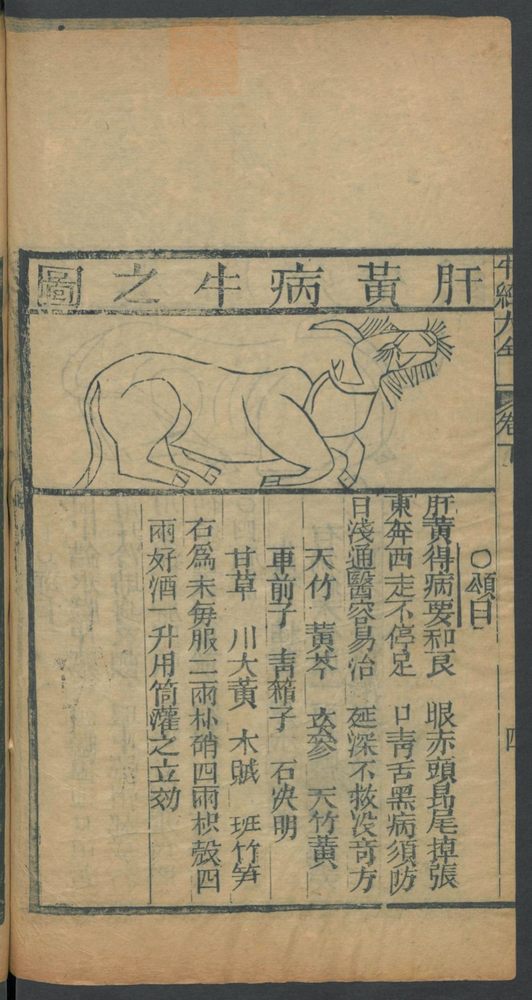 肝黃病牛之圖
○頌曰
肝黃得病要和良　眼赤頭昂尾掉張
東奔西走不停足　口青舌黑病須防
日淺通醫容易治　延深不救没奇方
天竹　黃芩　玄參　天竹黃
車前子　青箱子　石決明
甘草　川大黃　木賊　班竹笋
右為末每服二兩朴硝四兩枳殼四
兩好酒一升用筒灌之立効
四